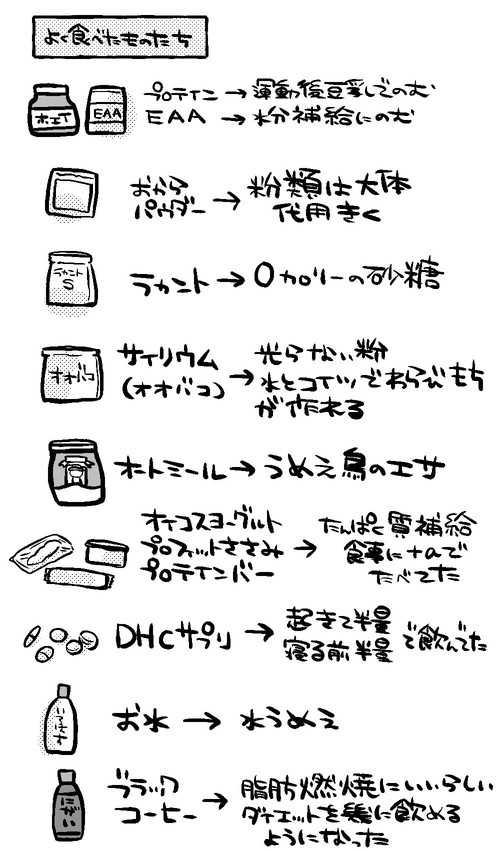 よく食べたものたち
ホエイ
EAA
プロテイン→運動後豆乳でのむ
EAA→水分補給にのむ
おから
パウダー
→
粉類は大体
代用きく
ラカント
S
ラカント→0カロリーの砂糖
オオバコ
サイリウム
(オオバコ)
→
光らない粉
水とコイツでわらびもち
が作れる
オートミール→うめえ鳥のエサ
オイコスヨーグルト
プロフィットささみ
プロテインバー
→
たんぱく質補給
食事に+αで
たべてた
DHCサプリ→
起きて半量
寝る前半量
で飲んでた
いろはす
お水→水うめえ
にがい
ブラック
コーヒー
→
脂肪燃焼にいいらしい
ダイエットを機に飲める
ようになった